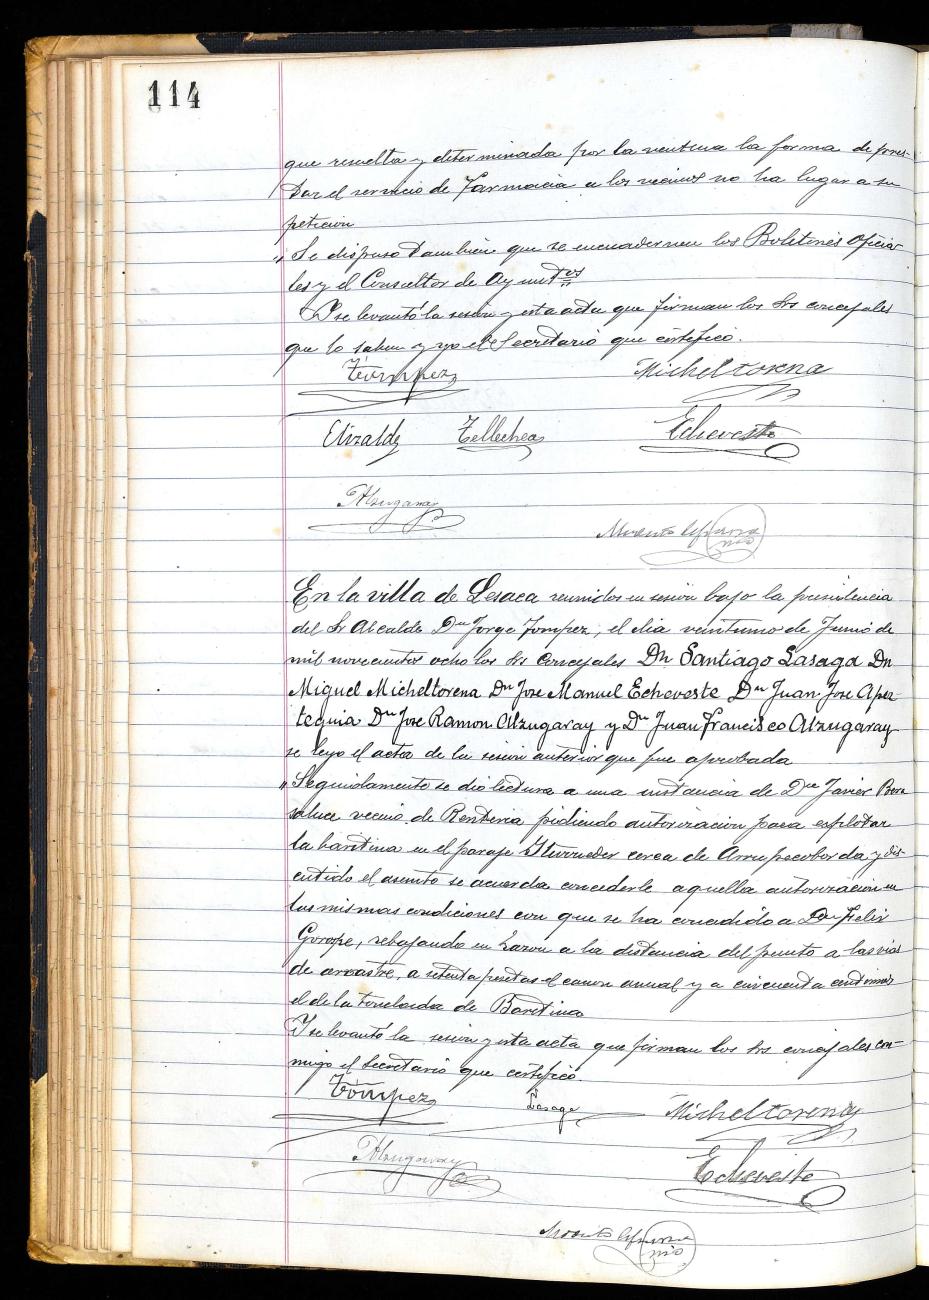 114
que resuelta y determinada por la ventena la forma de pres-
tar el servicio de farmacia a los vecinos no ha lugar a su
peticion
„ Se dispuso tambien que se encuadernen los Boletines Oficia-
les y el Consultor de Ayuntos
Y se levantó la sesion y esta acta que firman los Srs concejales
que lo saben y yo el Secretario que certifico.
Tompez Micheltorena
Elizalde Tellechea Echeveste
Alzugaray
En la villa de Lesaca reunidos en sesion bajo la presidencia
del Sr Alcalde Dn Jorge Tompez, el dia veintuno de Junio de
mil novecientos ocho los Srs Concejales Dn Santiago Lasaga Dn
Miguel Micheltorena Dn Jose Manuel Echeveste Dn Juan Jose Apez-
teguia Dn Jose Ramon Alzugaray y Dn Juan Francisco Alzugaray
se leyo el acta de la sesion anterior que fue aprobada
„ Seguidamente se dio lectura a una instancia de Dn Javier Bera
saluce vecino de Renteria pidiendo autorizacion para explotar
la baritina en el paraje Iturrieder cerca de Arrupecoborda, y dis-
cutido el asunto se acuerda concederle aquella autorizacion en
las mismas condiciones con que se ha concedido a Dn Felix
Gorope, rebajando en razon a la distancia del punto a las vias
de arrastre, a setenta pesetas el canon anual y a cincuenta centimos
el de la tonelada de Baritina
Y se levantó la sesion y esta acta que firman los Srs concejales con-
migo el Secretario que certifico.
Tompez Lasaga Micheltorena
Alzugaray Echeveste